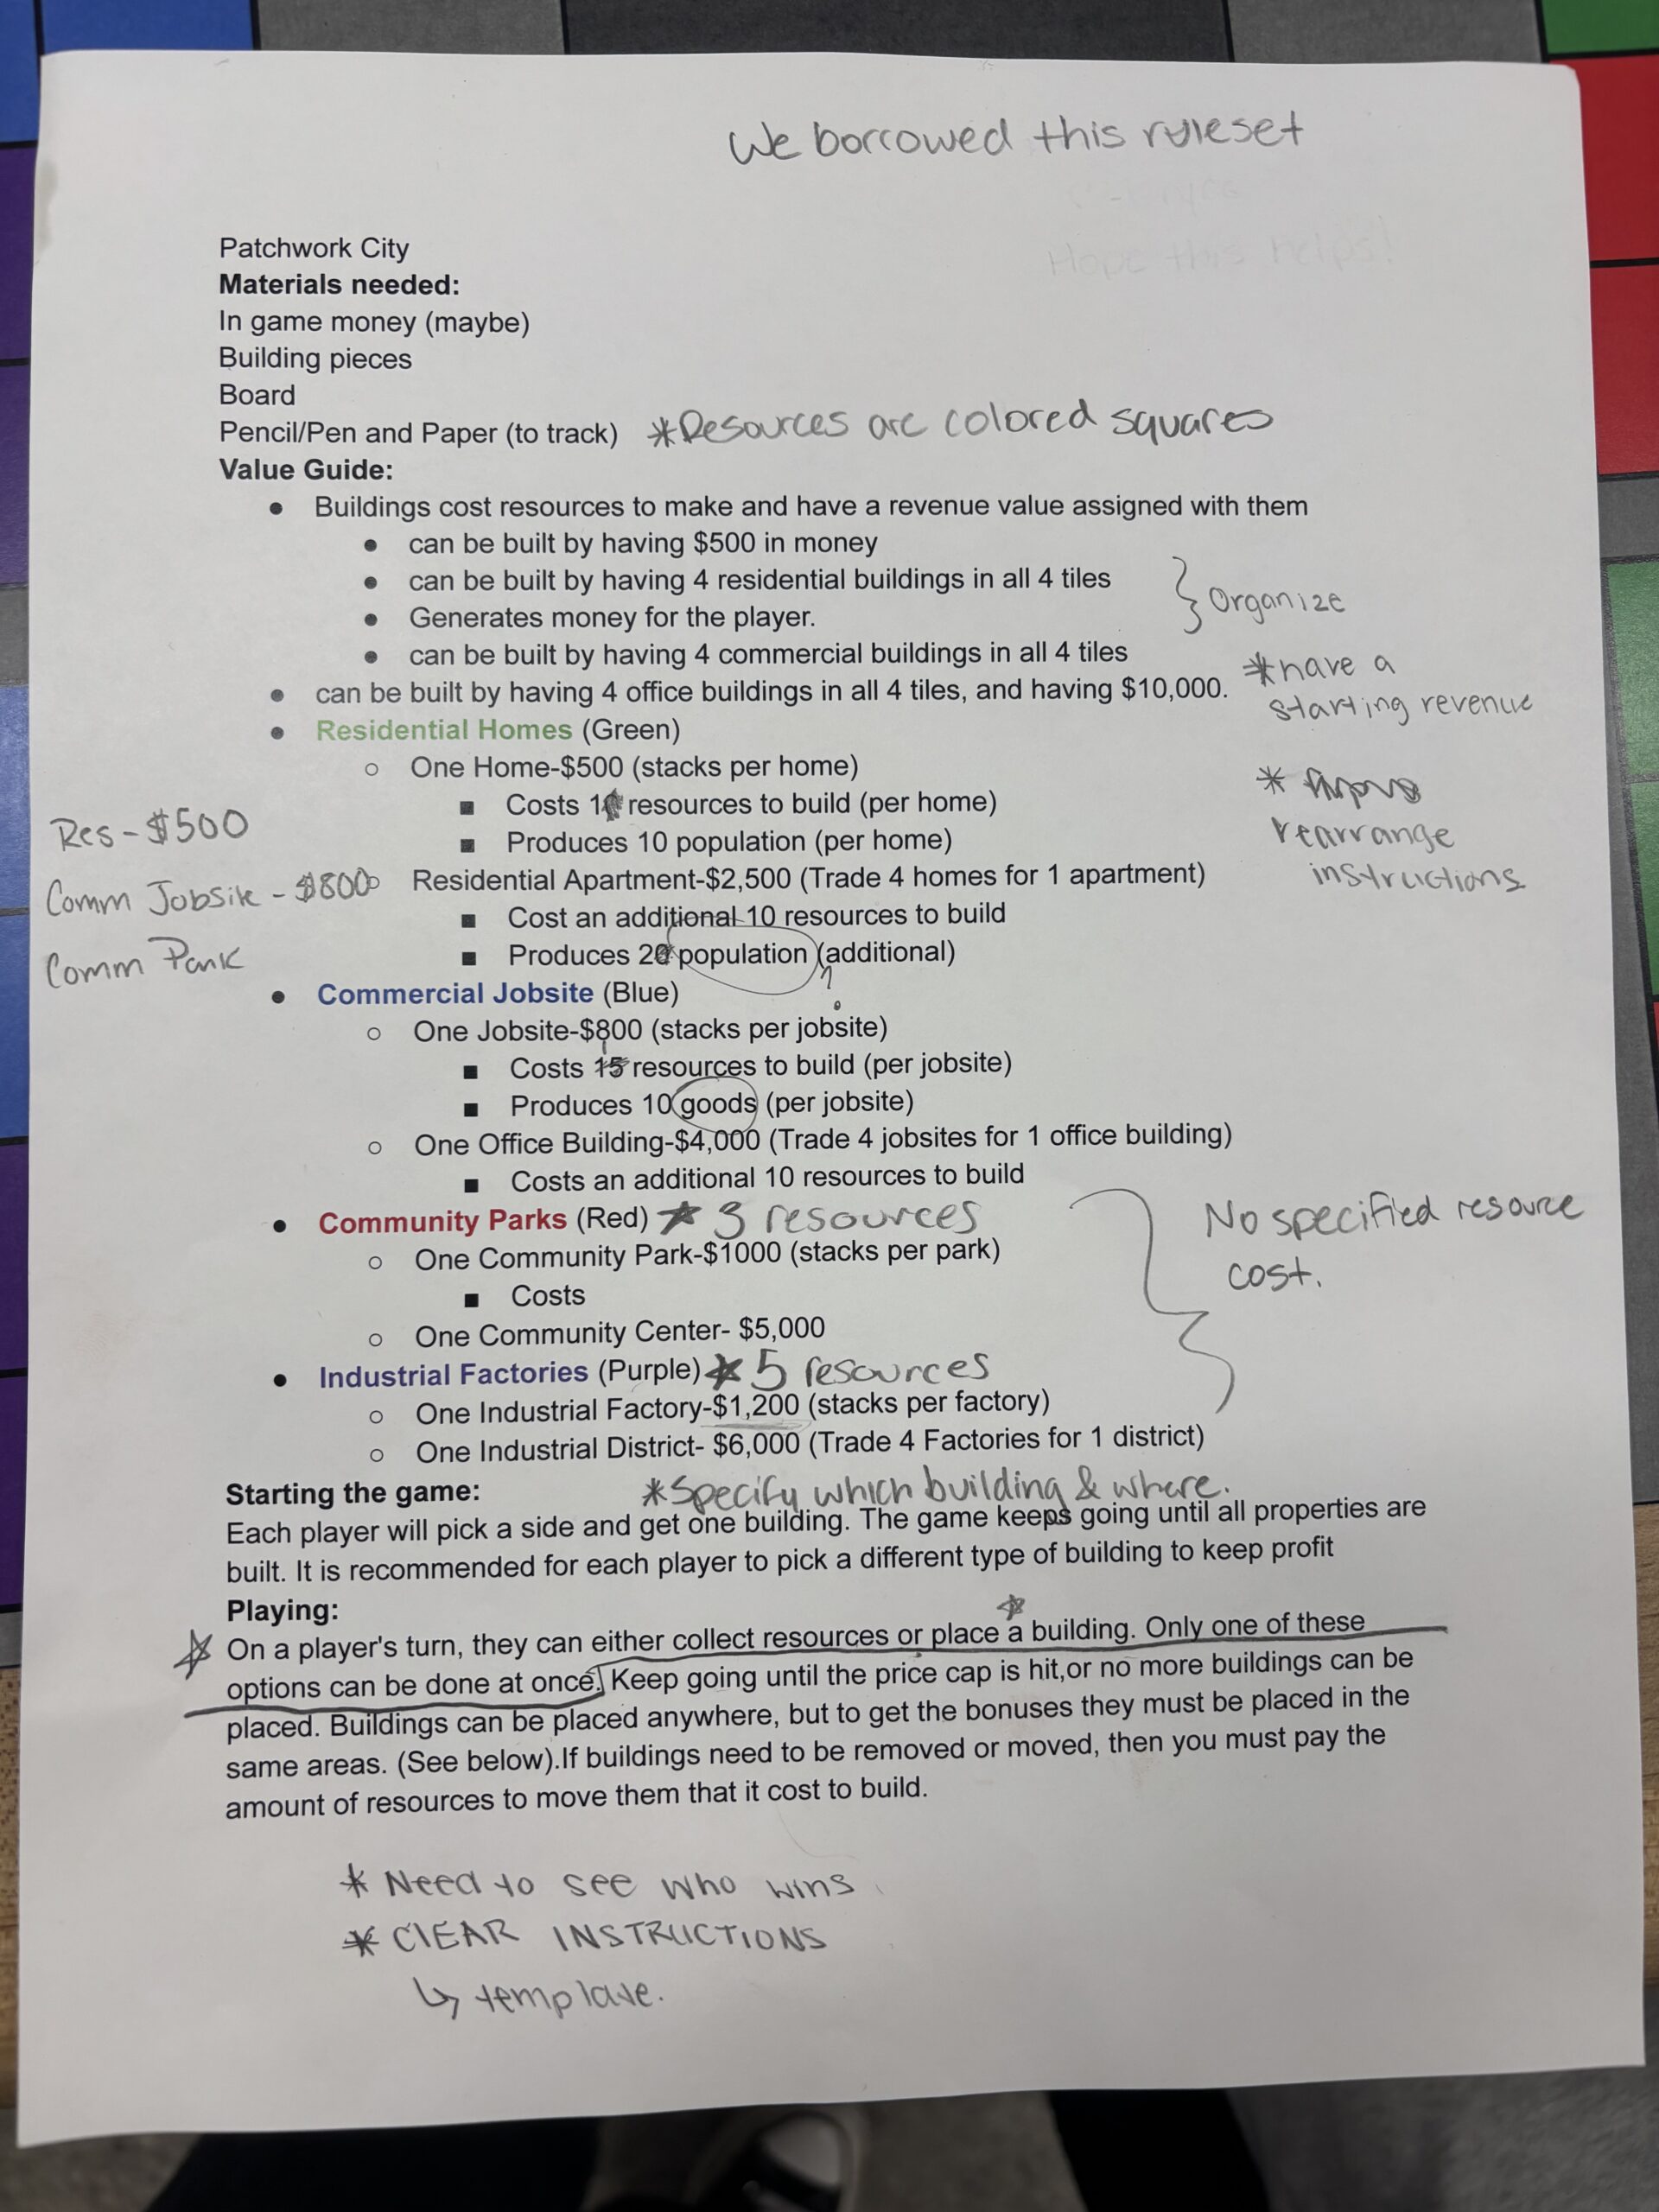 We borrowed this ruleset
Hope this helps!
Patchwork City
Materials needed:
In game money (maybe)
Building pieces
Board
Pencil/Pen and Paper (to track) *Resources are colored squares
Value Guide:
● Buildings cost resources to make and have a revenue value assigned with them
● can be built by having $500 in money
● can be built by having 4 residential buildings in all 4 tiles
● Generates money for the player.
} Organize
● can be built by having 4 commercial buildings in all 4 tiles
● can be built by having 4 office buildings in all 4 tiles, and having $10,000.
*have a
starting revenue
● Residential Homes (Green)
○ One Home-$500 (stacks per home)
■ Costs 1 resources to build (per home)
■ Produces 10 population (per home)
*
rearrange
instructions
Res - $500
Comm Jobsite - $800
Comm Park
○ Residential Apartment-$2,500 (Trade 4 homes for 1 apartment)
■ Cost an additional 10 resources to build
■ Produces 2 population (additional)
?
● Commercial Jobsite (Blue)
○ One Jobsite-$800 (stacks per jobsite)
■ Costs 15 resources to build (per jobsite)
■ Produces 10 goods (per jobsite)
○ One Office Building-$4,000 (Trade 4 jobsites for 1 office building)
■ Costs an additional 10 resources to build
● Community Parks (Red) * 3 resources
○ One Community Park-$1000 (stacks per park)
■ Costs
○ One Community Center- $5,000
No specified resource
cost.
● Industrial Factories (Purple) * 5 resources
○ One Industrial Factory-$1,200 (stacks per factory)
○ One Industrial District- $6,000 (Trade 4 Factories for 1 district)
Starting the game: *Specify which building & where.
Each player will pick a side and get one building. The game keeps going until all properties are
built. It is recommended for each player to pick a different type of building to keep profit
Playing:
On a player's turn, they can either collect resources or place a building. Only one of these
options can be done at once. Keep going until the price cap is hit,or no more buildings can be
placed. Buildings can be placed anywhere, but to get the bonuses they must be placed in the
same areas. (See below).If buildings need to be removed or moved, then you must pay the
amount of resources to move them that it cost to build.
* Need to see who wins
* CLEAR INSTRUCTIONS
↳ template.